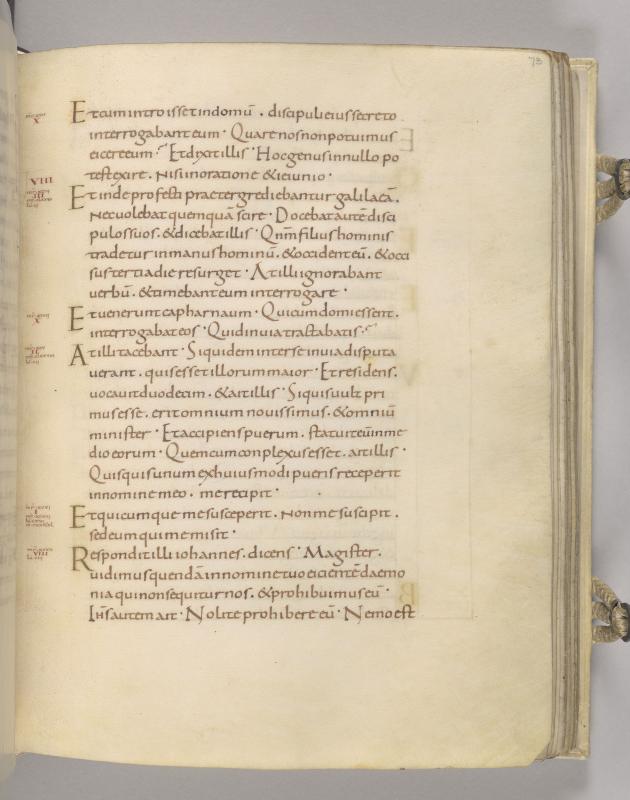 73
Et cum introisset in domū . discipuli eius secreto
interrogabant eum · Quare nos non potuimus
eicere eum · Et dixit illis · Hoc genus in nullo po
test exire . nisi in oratione & ieiunio ·
VIIII
Et inde profecti praetergrediebantur galilaeā .
Nec volebat quemquā scire · Docebat autē disci
pulos suos . & dicebat illis · Qnm̄ filius hominis
tradetur in manus hominū . & occident eū . & occi
sus tertia die resurget · At illi ignorabant
verbū . & timebant eum interrogare ·
Et venerunt capharnaum · Qui cum domi essent .
interrogabat eos · Quid in via tractabatis ·
At illi tacebant · Siquidem inter se in via disputa
verant . quis esset illorum maior · Et residens .
vocavit duodecim . & ait illis · Si quis vult pri
mus esse . erit omnium novissimus . & omniū
minister · Et accipiens puerum . statuit eū in me
dio eorum · Quem cum conplexus esset . ait illis ·
Quisquis unum ex huiusmodi pueris receperit
in nomine meo . me recipit ·
Et quicumque me susceperit . non me suscipit .
sed eum qui me misit ·
Respondit illi iohannes . dicens · Magister .
vidimus quendā in nomine tuo eicientē daemo
nia qui non sequitur nos . & prohibuimus eū ·
Ihs̄ autem ait · Nolite prohibere eū · Nemo est